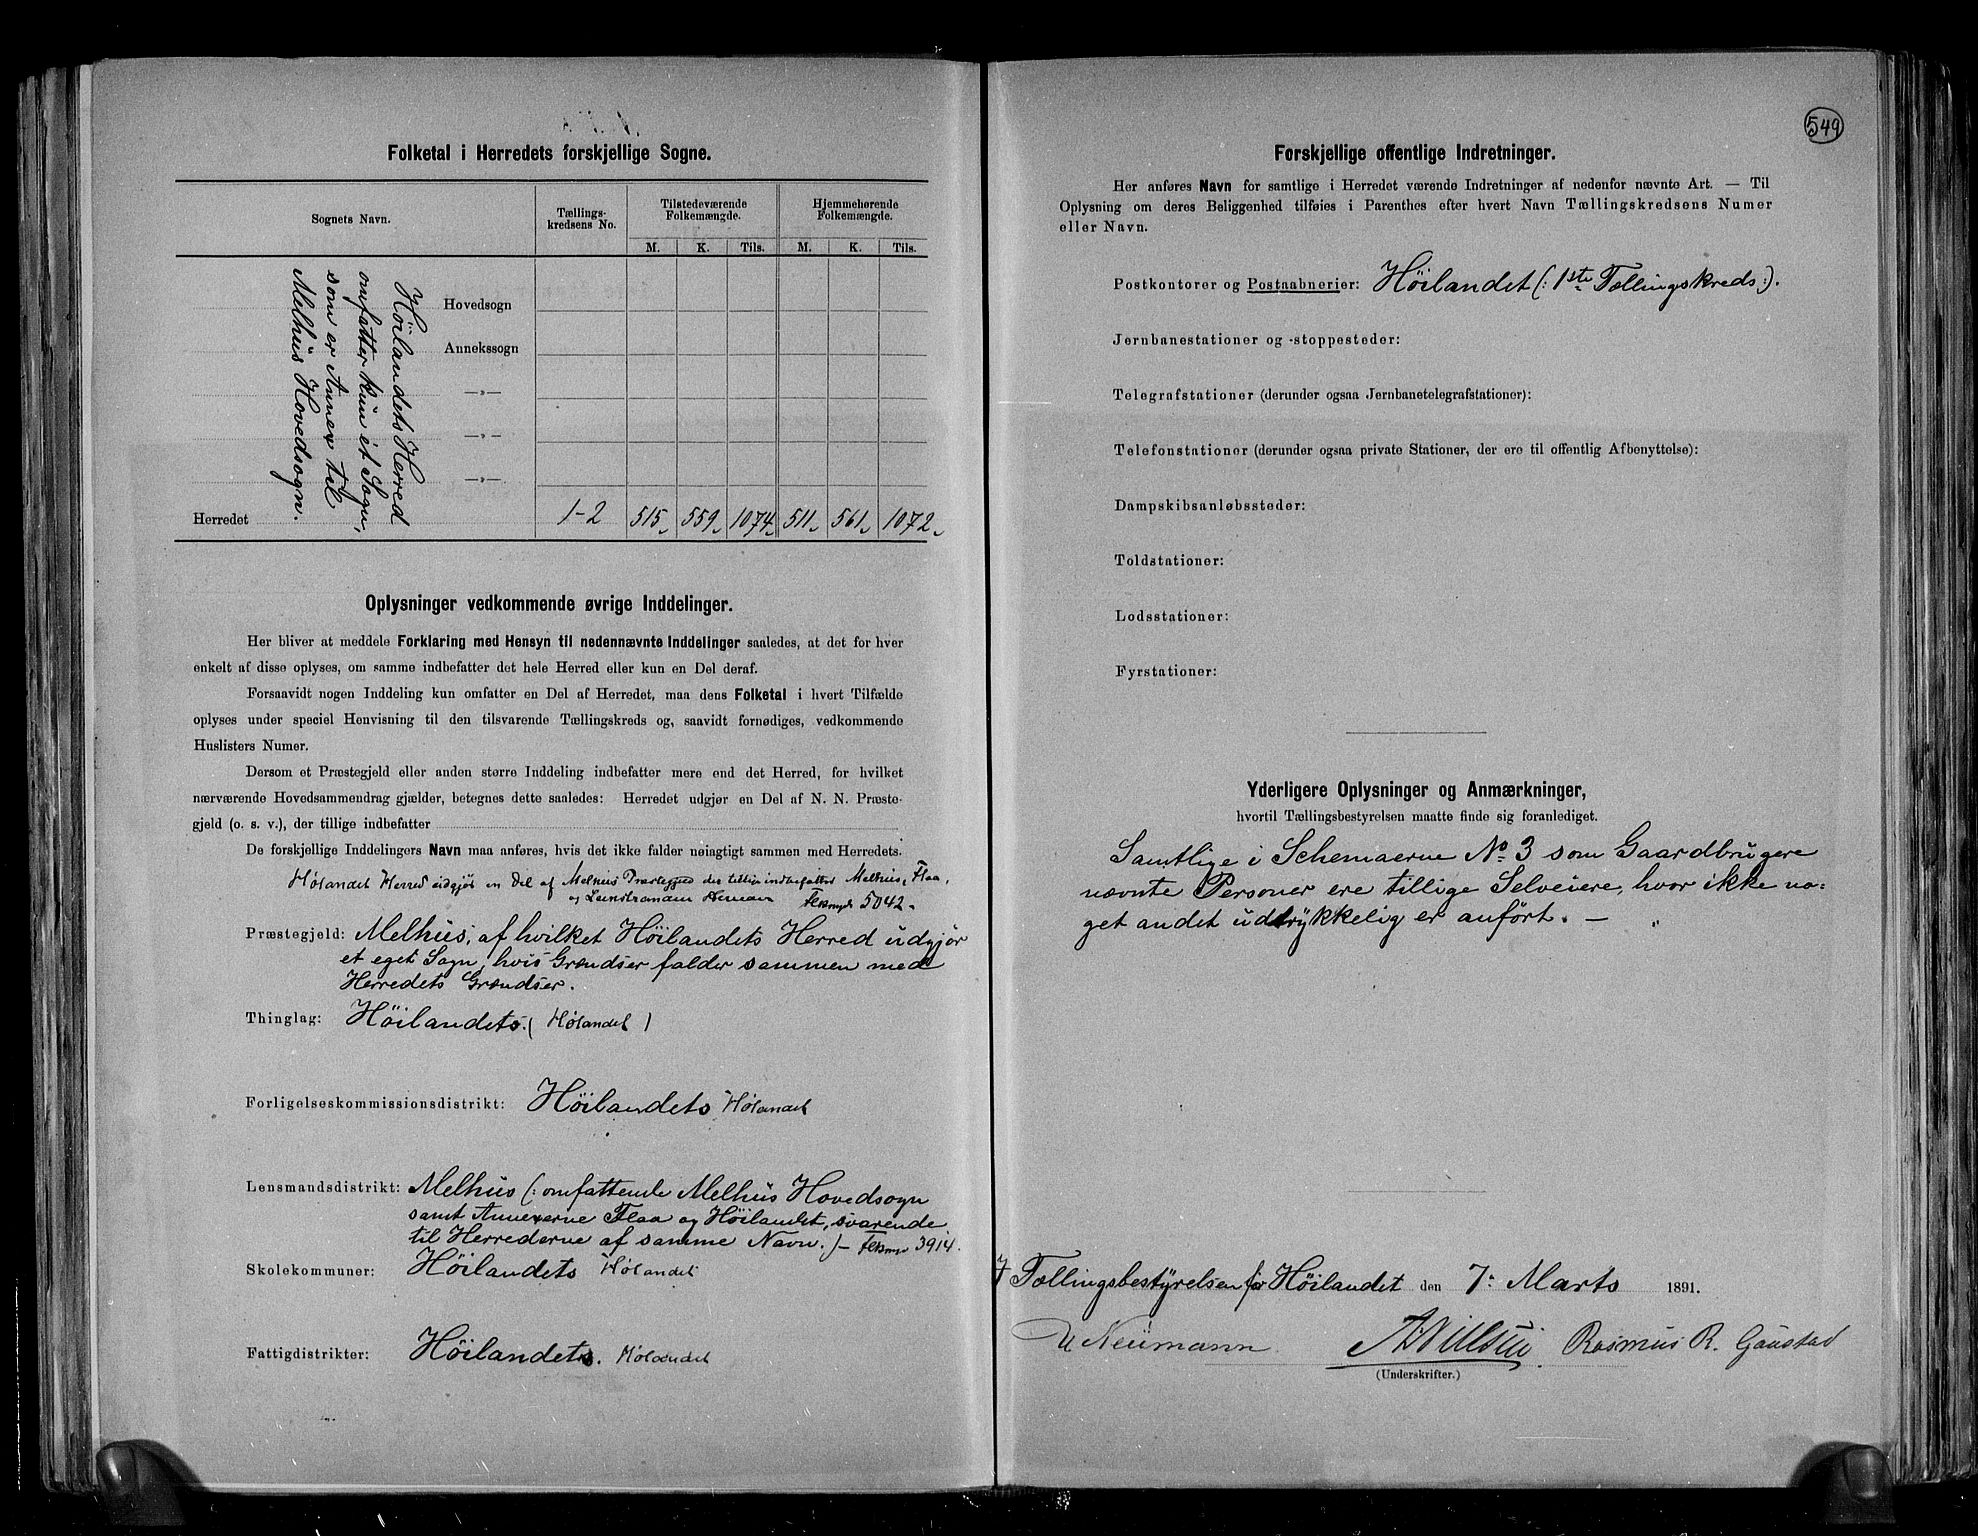 Folketal i Herredets forskjellige Sogne.
Sognets Navn.
Tællings-
kredsens No.
Tilstedeværende
Folkemængde.
Hjemmehørende
Folkemængde.
M. K. Tils. M. K. Tils.
Höilandets Herred
omfatter kun et Sogn,
som er Annex til
Melhus Hovedsogn.
Hovedsogn
Annekssogn
—„—
—„—
—„—
Herredet 1-2 515 559 1074 511 561 1072
Oplysninger vedkommende øvrige Inddelinger.
Her bliver at meddele Forklaring med Hensyn til nedennævnte Inddelinger saaledes, at det for hver
enkelt af disse oplyses, om samme indbefatter det hele Herred eller kun en Del deraf.
Forsaavidt nogen Inddeling kun omfatter en Del af Herredet, maa dens Folketal i hvert Tilfælde
oplyses under speciel Henvisning til den tilsvarende Tællingskreds og, saavidt fornødiges, vedkommende
Huslisters Numer.
Dersom et Præstegjeld eller anden større Inddeling indbefatter mere end det Herred, for hvilket
nærværende Hovedsammendrag gjælder, betegnes dette saaledes: Herredet udgjør en Del af N. N. Præste-
gjeld (o. s. v.), der tillige indbefatter
De forskjellige Inddelingers Navn maa anføres, hvis det ikke falder nøiagtigt sammen med Herredets.
Hølandet Herred udgjør en Del af Melhus Præstegjeld der tillige indbefatter Melhus, Flaa,
og Leinstranden 5042
Præstegjeld: Melhus, af hvilket Höilandets Herred udgjør
et eget Sogn, hvis Grændser falder sammen med
Herredets Grændser.
Thinglag: Höilandets. (Hølandet)
Forligelseskommissionsdistrikt: Höilandets Hølandet
Lensmandsdistrikt: Melhus (: omfattende Melhus Hovedsogn
samt Annexerne Flaa og Höilandet, svarende
til Herrederne af samme Navn.) — 3914.
Skolekommuner: Höilandets Hølandet
Fattigdistrikter: Höilandets. Hølandet
549
Forskjellige offentlige Indretninger.
Her anføres Navn for samtlige i Herredet værende Indretninger af nedenfor nævnte Art. — Til
Oplysning om deres Beliggenhed tilføies i Parenthes efter hvert Navn Tællingskredsens Numer
eller Navn.
Postkontorer og Postaabnerier: Höilandet (: 1ste Tællingskreds:).
Jernbanestationer og -stoppesteder:
Telegrafstationer (derunder ogsaa Jernbanetelegrafstationer):
Telefonstationer (derunder ogsaa private Stationer, der ere til offentlig Afbenyttelse):
Dampskibsanløbssteder:
Toldstationer:
Lodsstationer:
Fyrstationer:
Yderligere Oplysninger og Anmærkninger,
hvortil Tællingsbestyrelsen maatte finde sig foranlediget.
Samtlige i Schemaerne No 3 som Gaardbrugere
nævnte Personer ere tillige Selveiere, hvor ikke no-
get andet udtrykkelig er anført. —
I Tællingsbestyrelsen for Höilandet den 7. Marts 1891.
Neumann Rasmus R. Gaustad
(Underskrifter.)